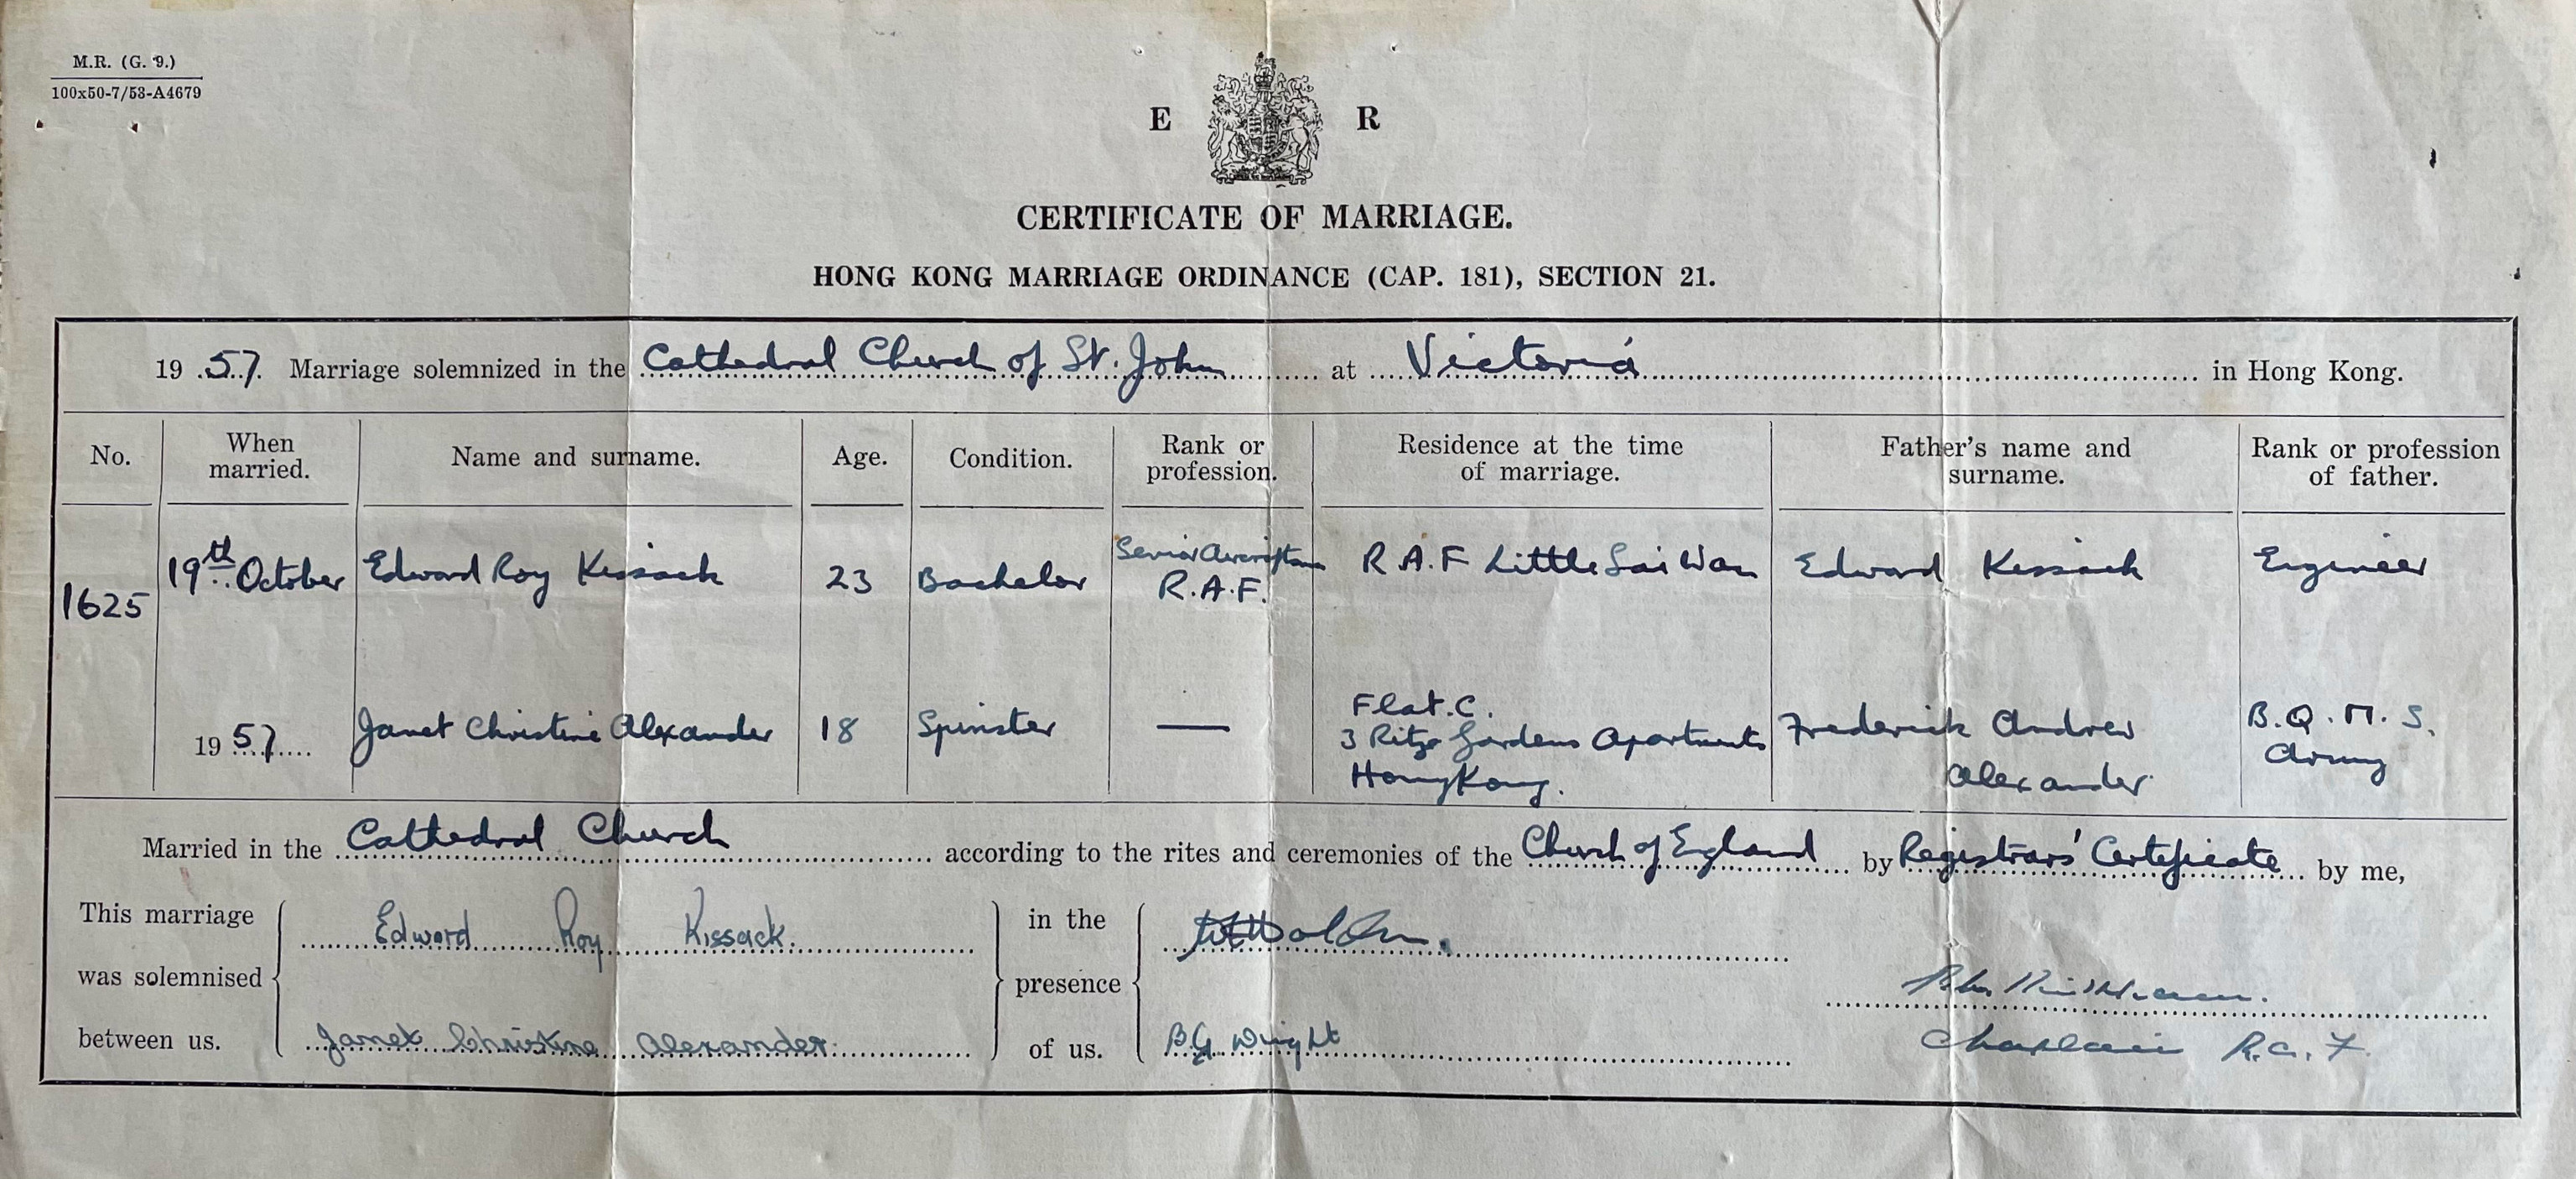 M.R. (G. 9.)
100x50-7/53-A4679
E R
CERTIFICATE OF MARRIAGE.
HONG KONG MARRIAGE ORDINANCE (CAP. 181), SECTION 21.
19 57. Marriage solemnized in the Cathedral Church of St. John at Victoria in Hong Kong.
No. When married. Name and surname. Age. Condition. Rank or profession. Residence at the time of marriage. Father's name and surname. Rank or profession of father.
1625 19th October Edward Roy Kissack 23 Bachelor Senior Aircraftman R.A.F. R.A.F Little Sai Wan Edward Kissack Engineer
1957 Janet Christine Alexander 18 Spinster — Flat.C. 3 Ritz Gardens Apartments Hong Kong. Frederick Andrew Alexander B.Q.M.S. Army
Married in the Cathedral Church according to the rites and ceremonies of the Church of England by Registrars' Certificate by me,
This marriage was solemnised between us. Edward Roy Kissack. Janet Christine Alexander. in the presence of us. BG Wright
Chaplain R.A.F.